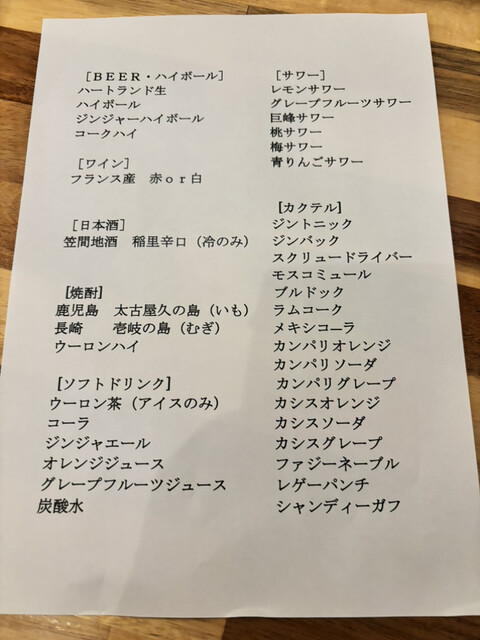 ［ＢＥＥＲ・ハイボール］
ハートランド生
ハイボール
ジンジャーハイボール
コークハイ
［ワイン］
フランス産　赤ｏｒ白
［日本酒］
笠間地酒　稲里辛口（冷のみ）
［焼酎］
鹿児島　太古屋久の島（いも）
長崎　　壱岐の島（むぎ）
ウーロンハイ
［ソフトドリンク］
ウーロン茶（アイスのみ）
コーラ
ジンジャエール
オレンジジュース
グレープフルーツジュース
炭酸水
［サワー］
レモンサワー
グレープフルーツサワー
巨峰サワー
桃サワー
梅サワー
青りんごサワー
［カクテル］
ジントニック
ジンバック
スクリュードライバー
モスコミュール
ブルドック
ラムコーク
メキシコ―ラ
カンパリオレンジ
カンパリソーダ
カンパリグレープ
カシスオレンジ
カシスソーダ
カシスグレープ
ファジーネーブル
レゲーパンチ
シャンディーガフ